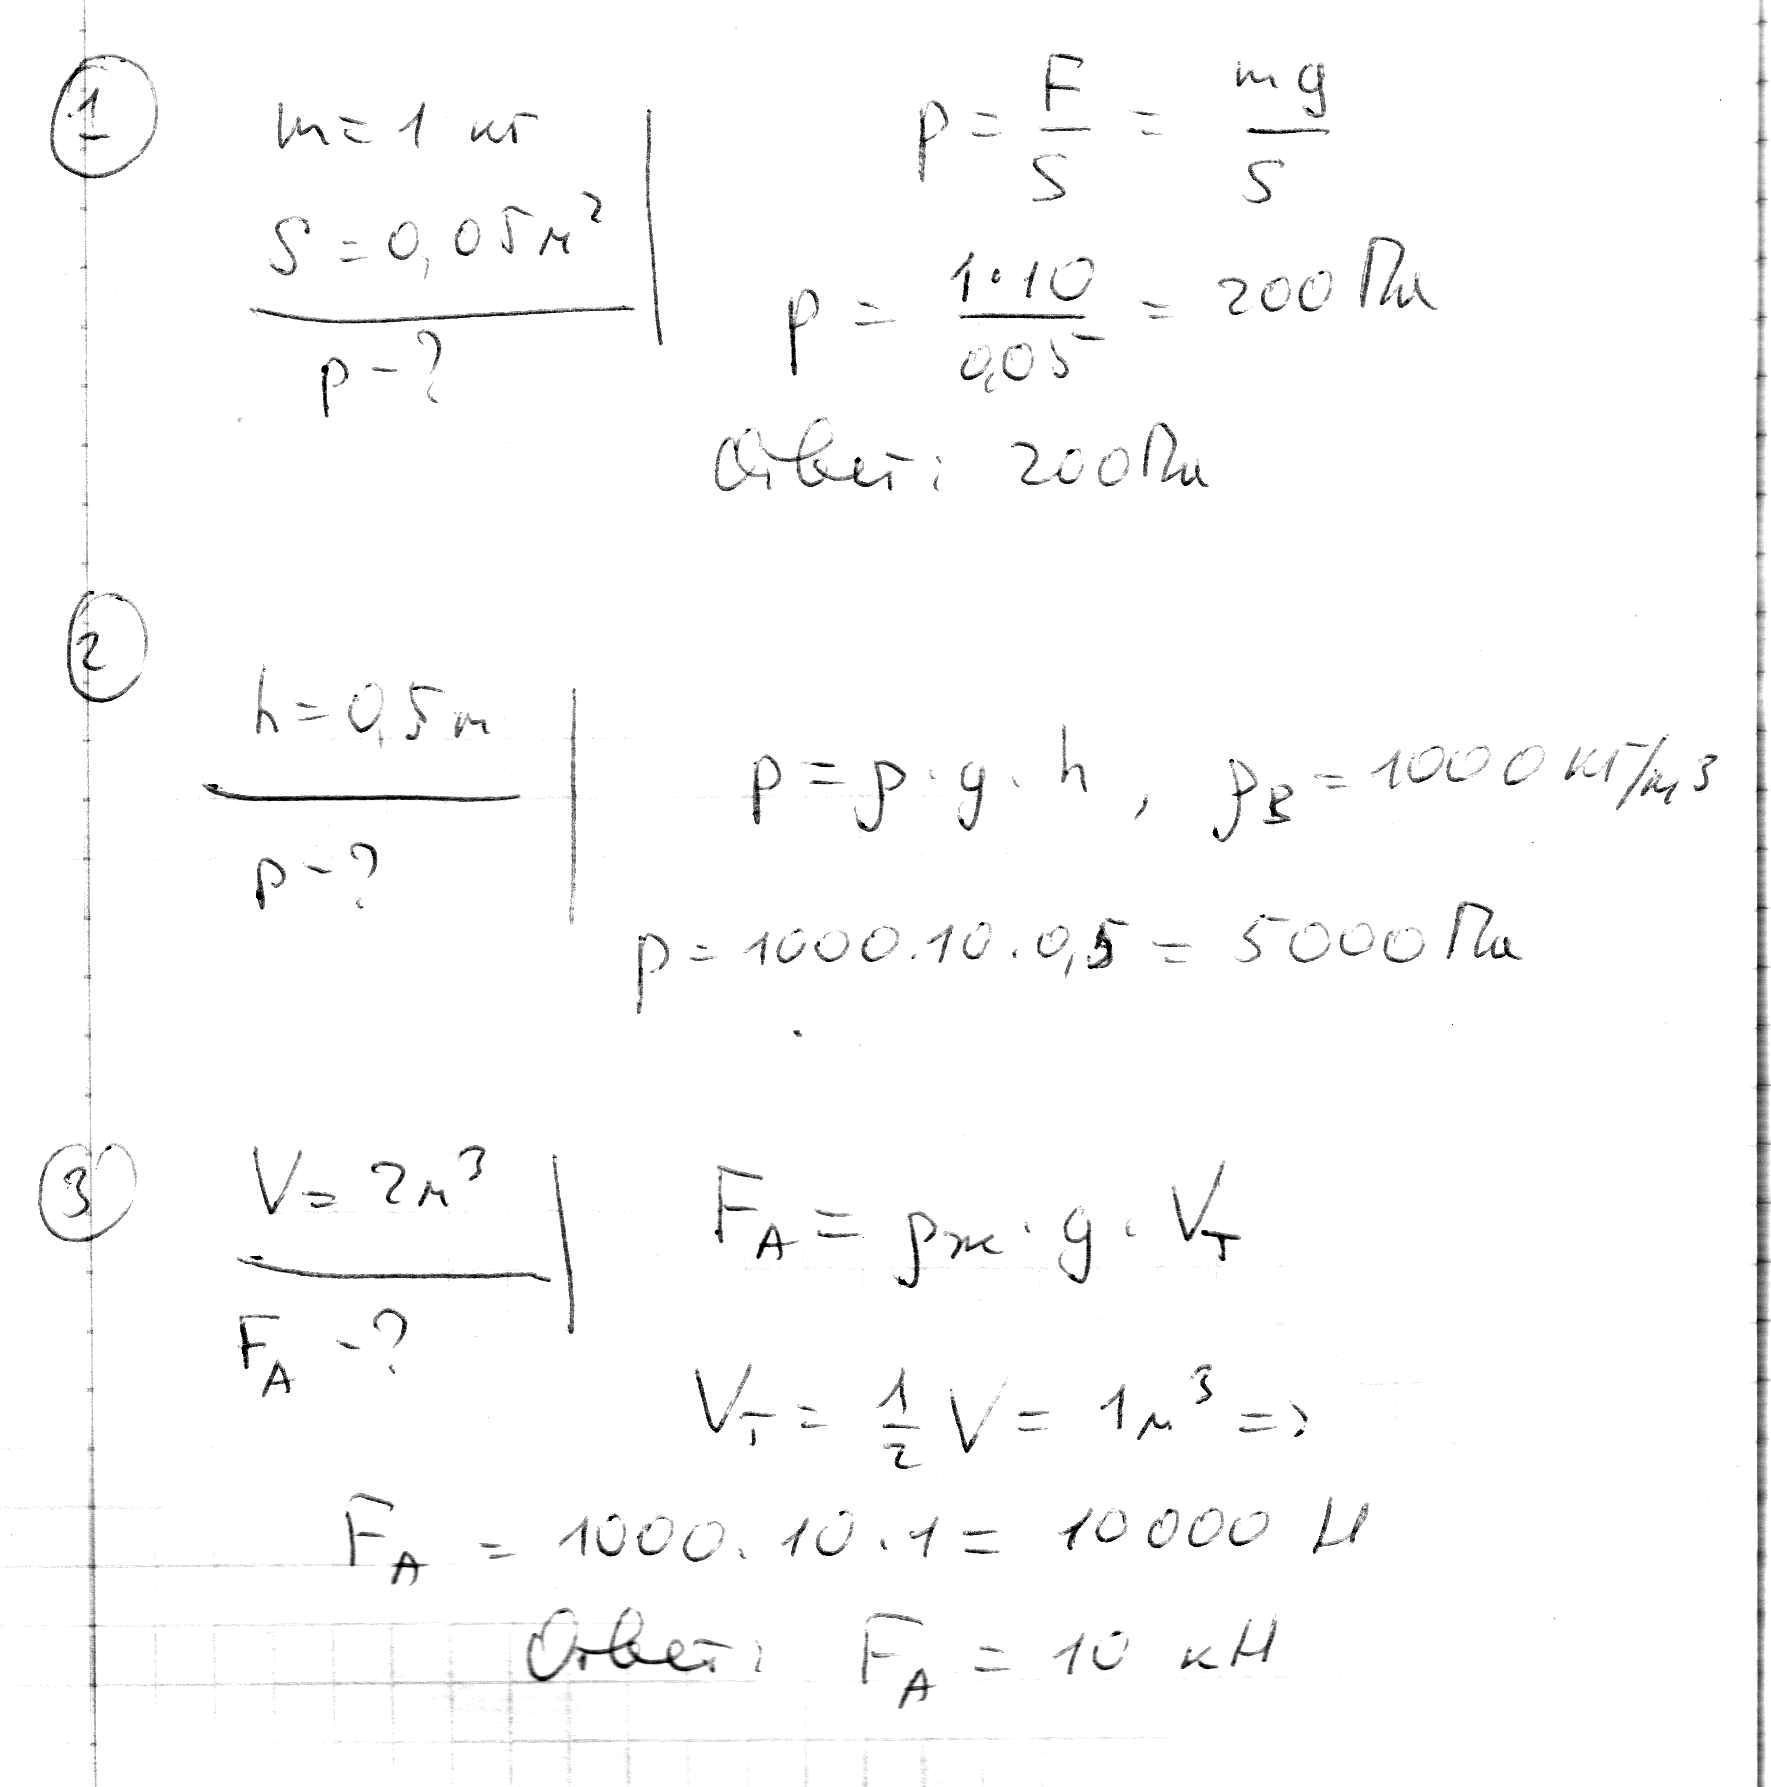 1
m = 1 кг
S = 0,05 м²
p - ?
p = F/S = mg/S
p = 1·10/0,05 = 200 Па
Ответ: 200 Па
2
h = 0,5 м
p - ?
p = ρ · g · h , ρв = 1000 кг/м³
p = 1000 · 10 · 0,5 = 5000 Па
3
V = 2 м³
F_A - ?
F_A = ρж · g · Vт
Vт = 1/2 V = 1 м³ =>
F_A = 1000 · 10 · 1 = 10000 Н
Ответ: F_A = 10 кН